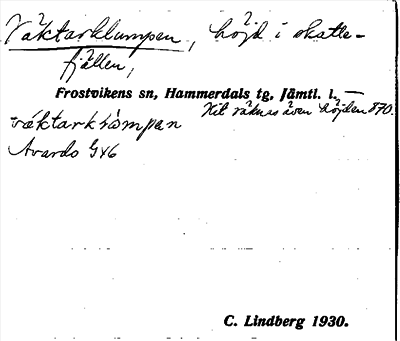 Väktarklumpen, höjd i skatte-
fjällen,
Frostvikens sn, Hammerdals tg, Jämtl. l. —
Hit räknas även höjden 870.
Avardo G46
C. Lindberg 1930.